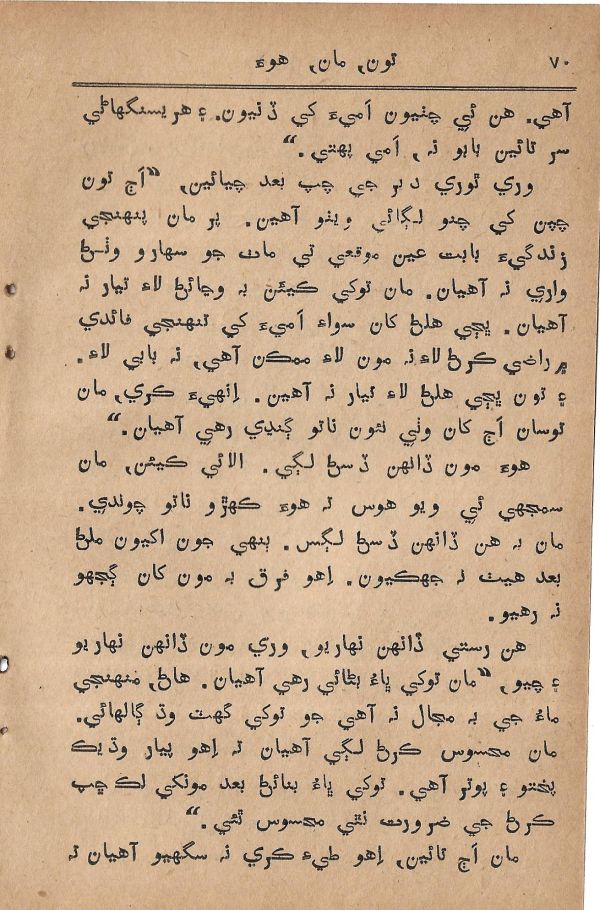 ٧٠ تون, مان, هوءَ
آهي. هن ئي چٺيون اَميءَ کي ڏنيون. ۽ هر يسنگهاڻي
سر تائين بابو نہ, اَمي پهتي.“
وري ٿوري دير جي چپ بعد چيائين, ”اَڄ تون
چپن کي چنو لڳائي ويٺو آهين. پر مان پنهنجي
زندگيءَ بابت عين موقعي تي ماٺ جو سهارو وٺڻ
واري نہ آهيان. مان توکي ڪيئن بہ وڃائڻ لاءِ تيار نہ
آهيان. ڀڄي هلڻ کان سواءِ اَميءَ کي تنهنجي فائدي
۾ راضي ڪرڻ لاءِ نہ مون لاءِ ممڪن آهي, نہ بابي لاءِ.
۽ تون ڀڄي هلڻ لاءِ تيار نہ آهين. اِنهيءَ ڪري, مان
توسان اَڄ کان وٺي نئون ناتو ڳنڍي رهي آهيان.“
هوءَ مون ڏانهن ڏسڻ لڳي. الائي ڪيئن, مان
سمجهي ئي ويو هوس تہ هوءَ ڪهڙو ناتو چوندي.
مان بہ هن ڏانهن ڏسڻ لڳس. ٻنهي جون اکيون ملڻ
بعد هيٺ نہ جهڪيون. اِهو فرق بہ مون کان ڳجهو
نہ رهيو.
هن رستي ڏانهن نهاريو, وري مون ڏانهن نهاريو
۽ چيو, ”مان توکي ڀاءُ بڻائي رهي آهيان. هاڻ, منهنجي
ماءُ جي بہ مجال نہ آهي جو توکي گهٽ وڌ ڳالهائي.
مان محسوس ڪرڻ لڳي آهيان تہ اِهو پيار وڌيڪ
پختو ۽ پوتر آهي. توکي ڀاءُ بنائڻ بعد مونکي لڪ ڇپ
ڪرڻ جي ضرورت نٿي محسوس ٿئي.“
مان اَڄ تائين, اِهو طيءِ ڪري نہ سگهيو آهيان تہ